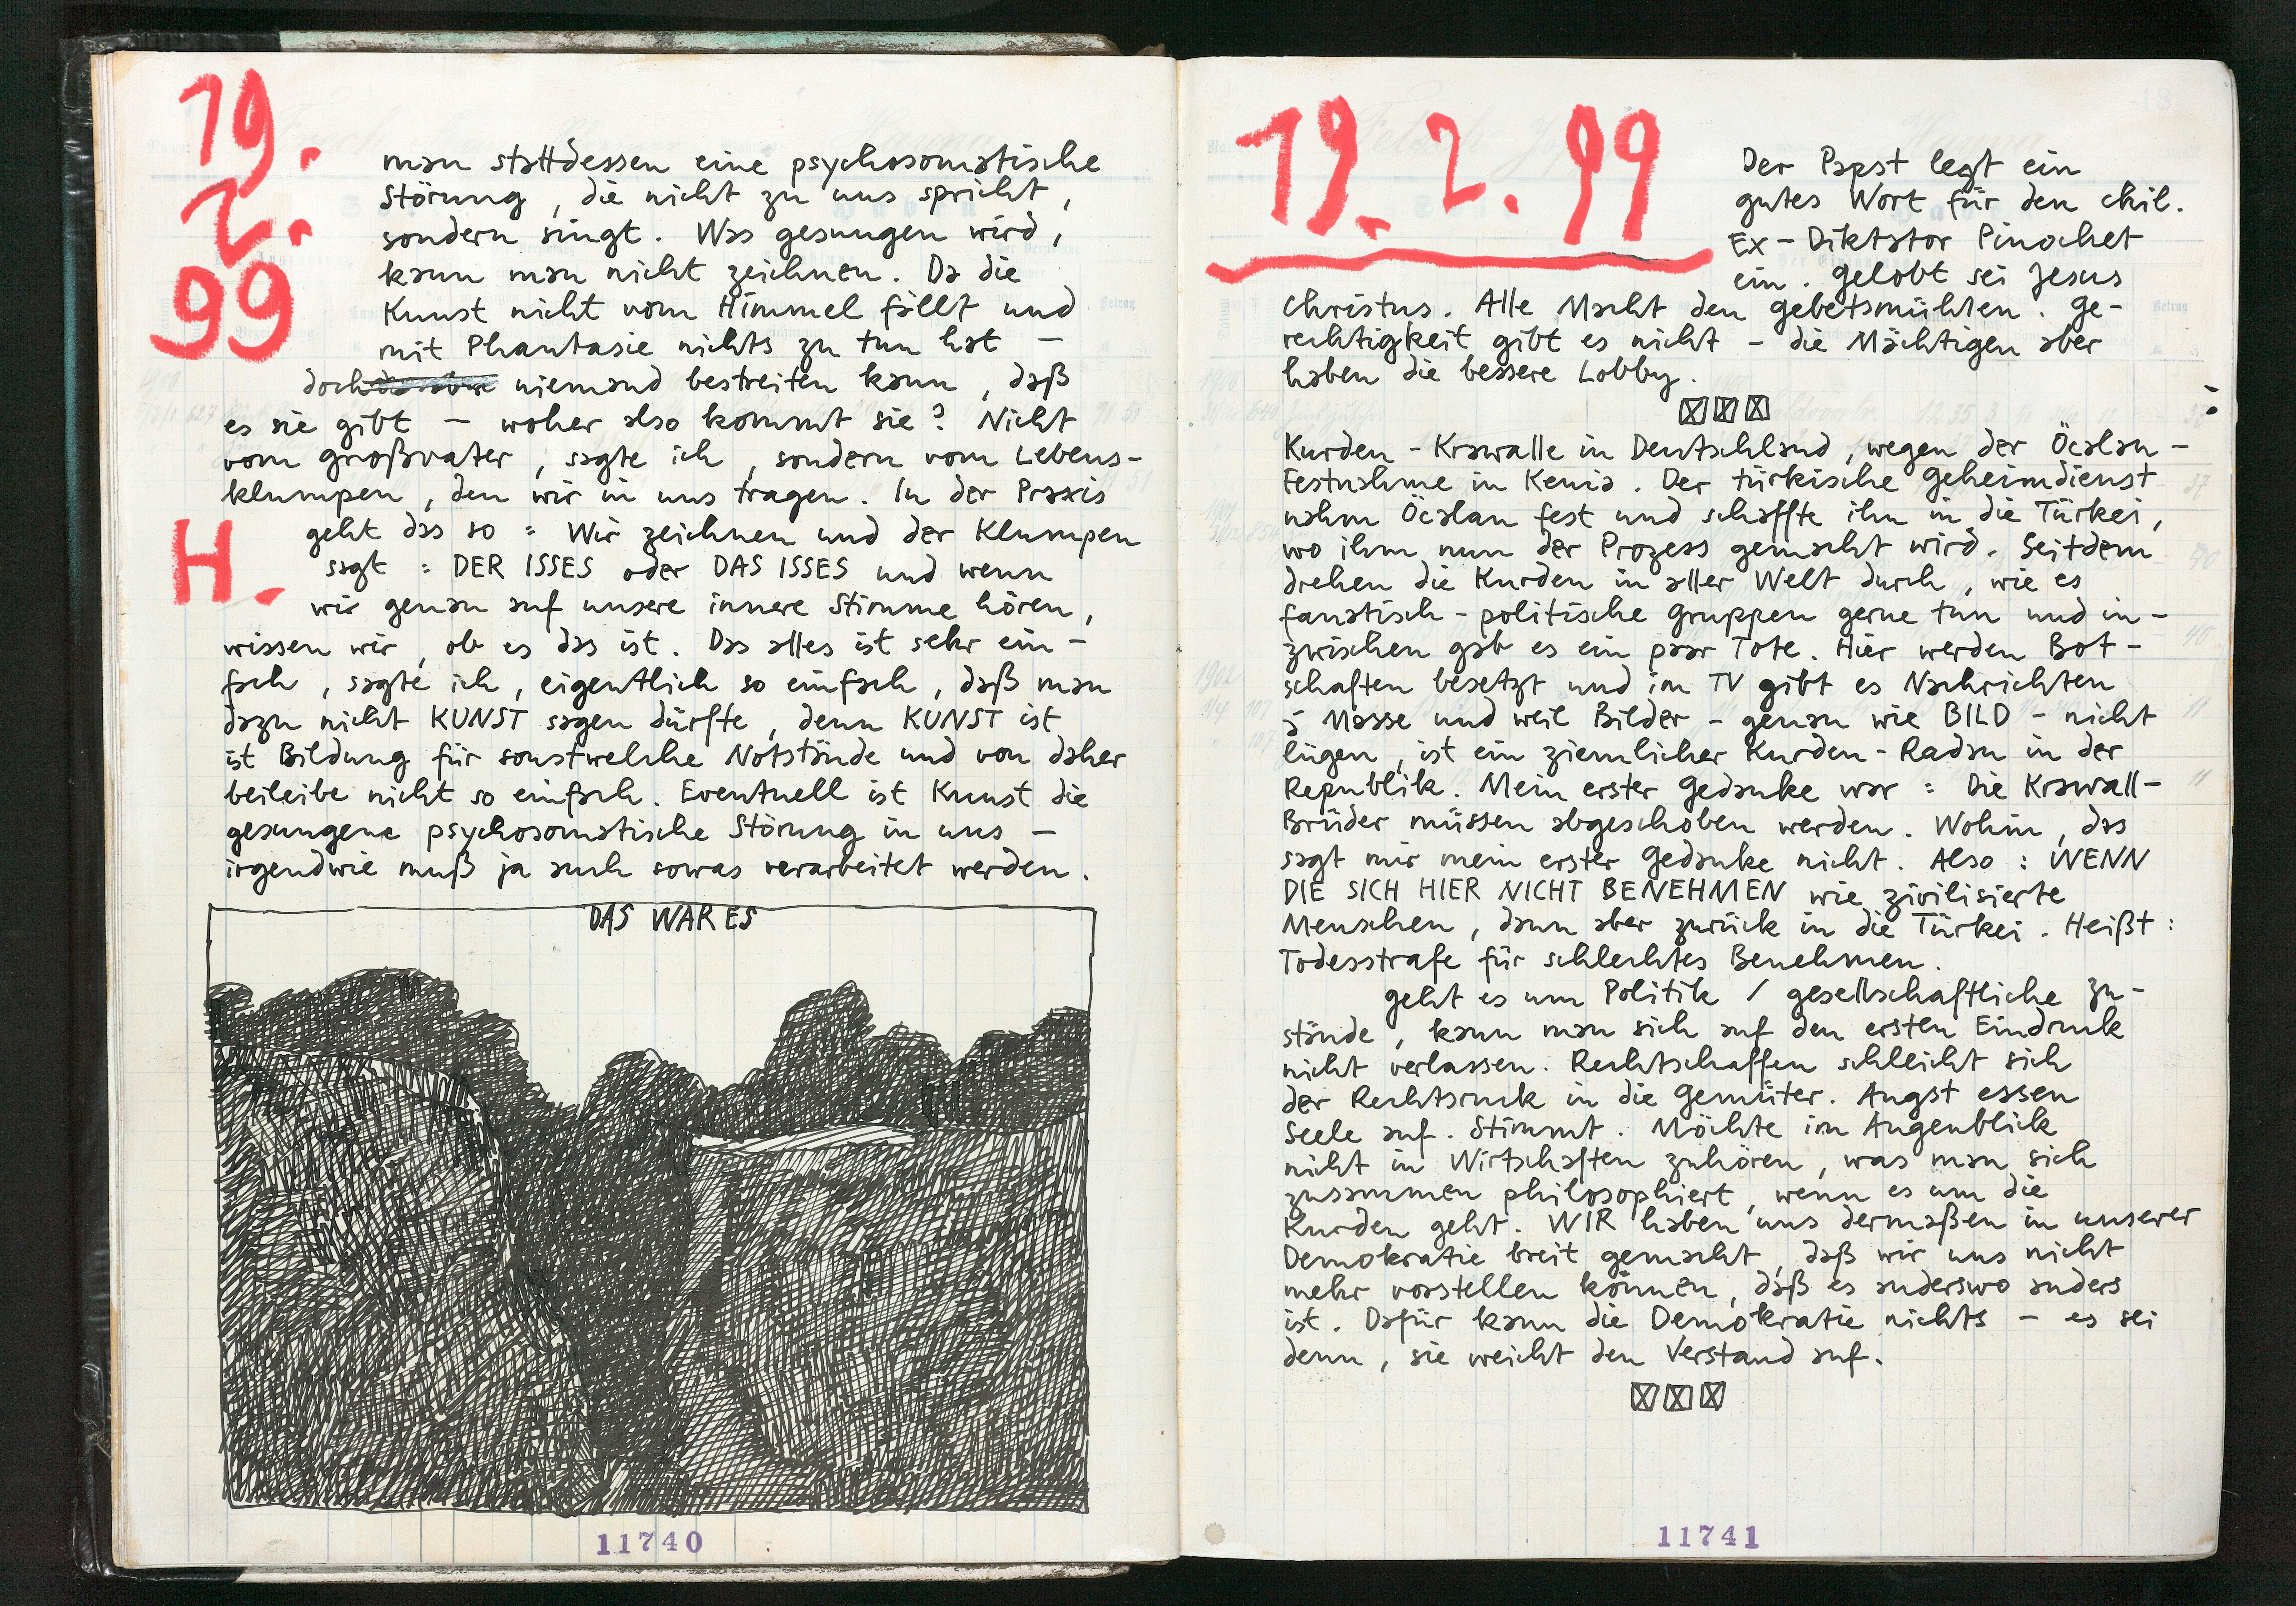 19.
2.
99
man stattdessen eine psychosomatische
Störung, die nicht zu uns spricht,
sondern singt. Was gesungen wird,
kann man nicht zeichnen. Da die
Kunst nicht vom Himmel fällt und
mit Phantasie nichts zu tun hat –
doch niemand bestreiten kann, daß
es sie gibt – woher also kommt sie? Nicht
vom Großvater, sagte ich, sondern vom Lebens-
klumpen, den wir in uns tragen. In der Praxis
H.
geht das so: Wir zeichnen und der Klumpen
sagt: DER ISSES oder DAS ISSES und wenn
wir genau auf unsere innere Stimme hören,
wissen wir, ob es das ist. Das alles ist sehr ein-
fach, sagte ich, eigentlich so einfach, daß man
dazu nicht KUNST sagen dürfte, denn KUNST ist
ist Bildung für sonstwelche Notstände und von daher
beileibe nicht so einfach. Eventuell ist Kunst die
gesungene psychosomatische Störung in uns –
irgendwie muß ja auch sowas verarbeitet werden.
DAS WAR ES
11740
19. 2. 99
Der Papst legt ein
gutes Wort für den chil.
Ex-Diktator Pinochet
ein. Gelobt sei Jesus
Christus. Alle Macht den Gebetsmühlen. Ge-
rechtigkeit gibt es nicht – die Mächtigen aber
haben die bessere Lobby.
Kurden-Krawalle in Deutschland, wegen der Öcalan-
Festnahme in Kenia. Der türkische Geheimdienst
nahm Öcalan fest und schaffte ihn in die Türkei,
wo ihm nun der Prozess gemacht wird. Seitdem
drehen die Kurden in aller Welt durch, wie es
fanatisch-politische Gruppen gerne tun und in-
zwischen gab es ein paar Tote. Hier werden Bot-
schaften besetzt und im TV gibt es Nachrichten
à Masse und weil Bilder – genau wie BILD – nicht
lügen, ist ein ziemlicher Kurden-Radau in der
Republik. Mein erster Gedanke war: Die Krawall-
Brüder müssen abgeschoben werden. Wohin, das
sagt mir mein erster Gedanke nicht. Also: WENN
DIE SICH HIER NICHT BENEHMEN wie zivilisierte
Menschen, dann aber zurück in die Türkei. Heißt:
Todesstrafe für schlechtes Benehmen.
Geht es um Politik / gesellschaftliche Zu-
stände, kann man sich auf den ersten Eindruck
nicht verlassen. Rechtschaffen schleicht sich
der Rechtsruck in die Gemüter. Angst essen
Seele auf. Stimmt. Möchte im Augenblick
nicht in Wirtschaften zuhören, was man sich
zusammen philosophiert, wenn es um die
Kurden geht. WIR haben uns dermaßen in unserer
Demokratie breit gemacht, daß wir uns nicht
mehr vorstellen können, daß es anderswo anders
ist. Dafür kann die Demokratie nichts – es sei
denn, sie weicht den Verstand auf.
11741